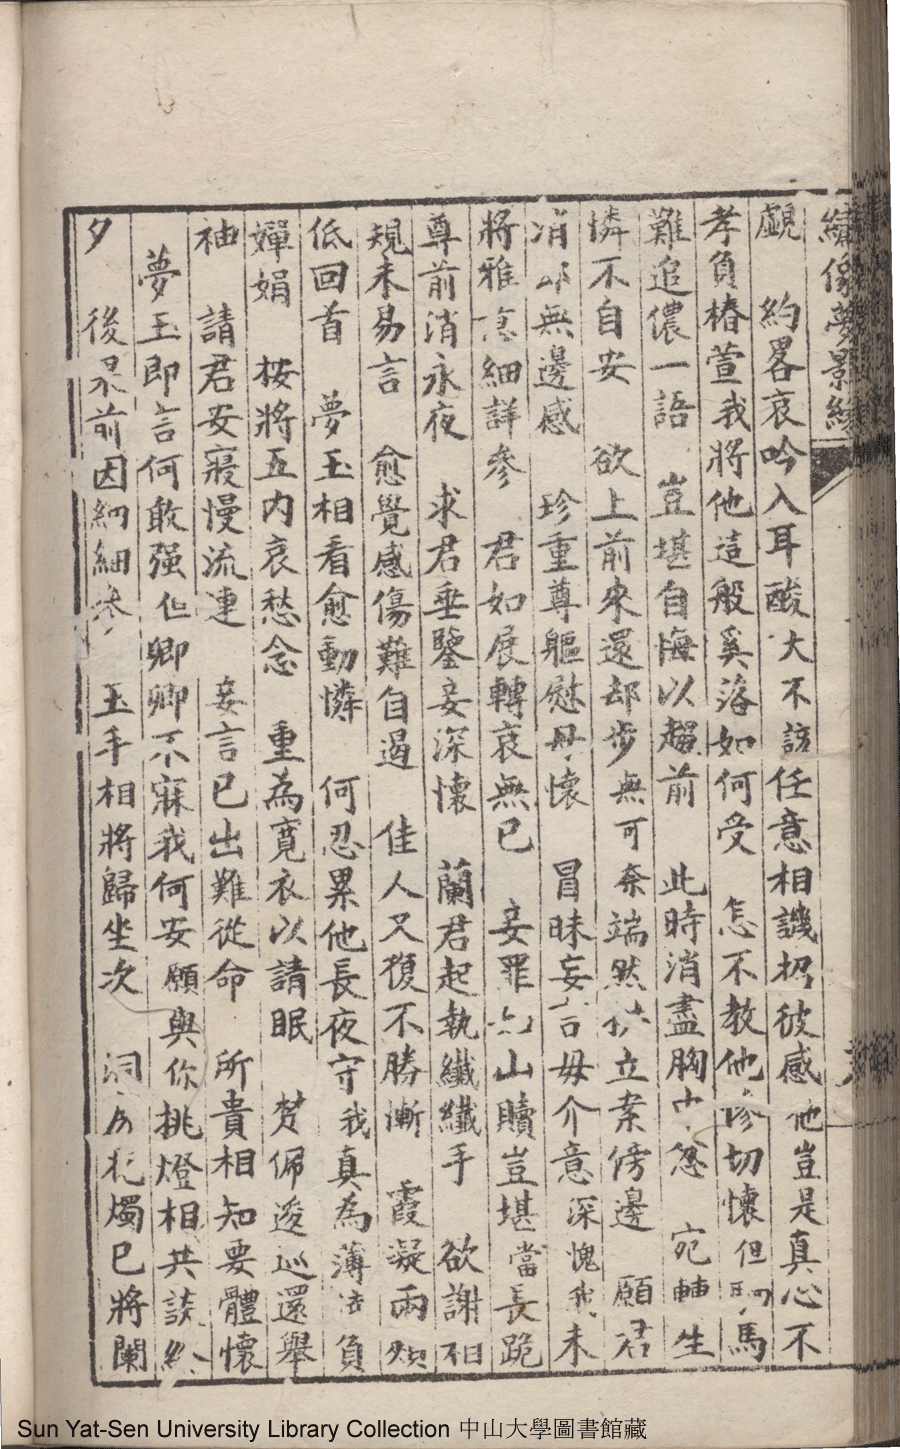 繡像夢影緣
覷　約畧哀吟入耳酸大不該任意相譏招彼感他豈是真心不
孝負椿萱我將他這般奚落如何受　怎不教他慘切懷但馬
難追儂一語　豈堪自悔以趨前　此時消盡胸中忿　宛轉生
憐不自安　欲上前來還却步無可奈端然立案傍邊　願君
消無邊感　珍重尊軀慰母懷　冒昧妄言毋介意深愧我未
將雅意細詳參　君如展轉哀無已　妾罪山贖豈堪當長跪
尊前消永夜　求君垂鑒妾深懷　蘭君起執纖纖手　欲謝不
規未易言　愈覺感傷難自遏　佳人又復不勝慚　霞凝兩頰
低回首　夢玉相看愈動憐　何忍累他長夜守我真為薄負
嬋娟　按將五內哀愁念　重為寬衣以請眠　楚佩逡巡還舉
袖　請君安寢慢流連　妾言已出難從命　所貴相知要體懷
夢玉即言何敢强但卿卿不寐我何安願與你挑燈相共談終
夕　後果前因細細參　玉手相將歸坐次　洞房花燭已將闌
Sun Yat-Sen University Library Collection 中山大學圖書館藏